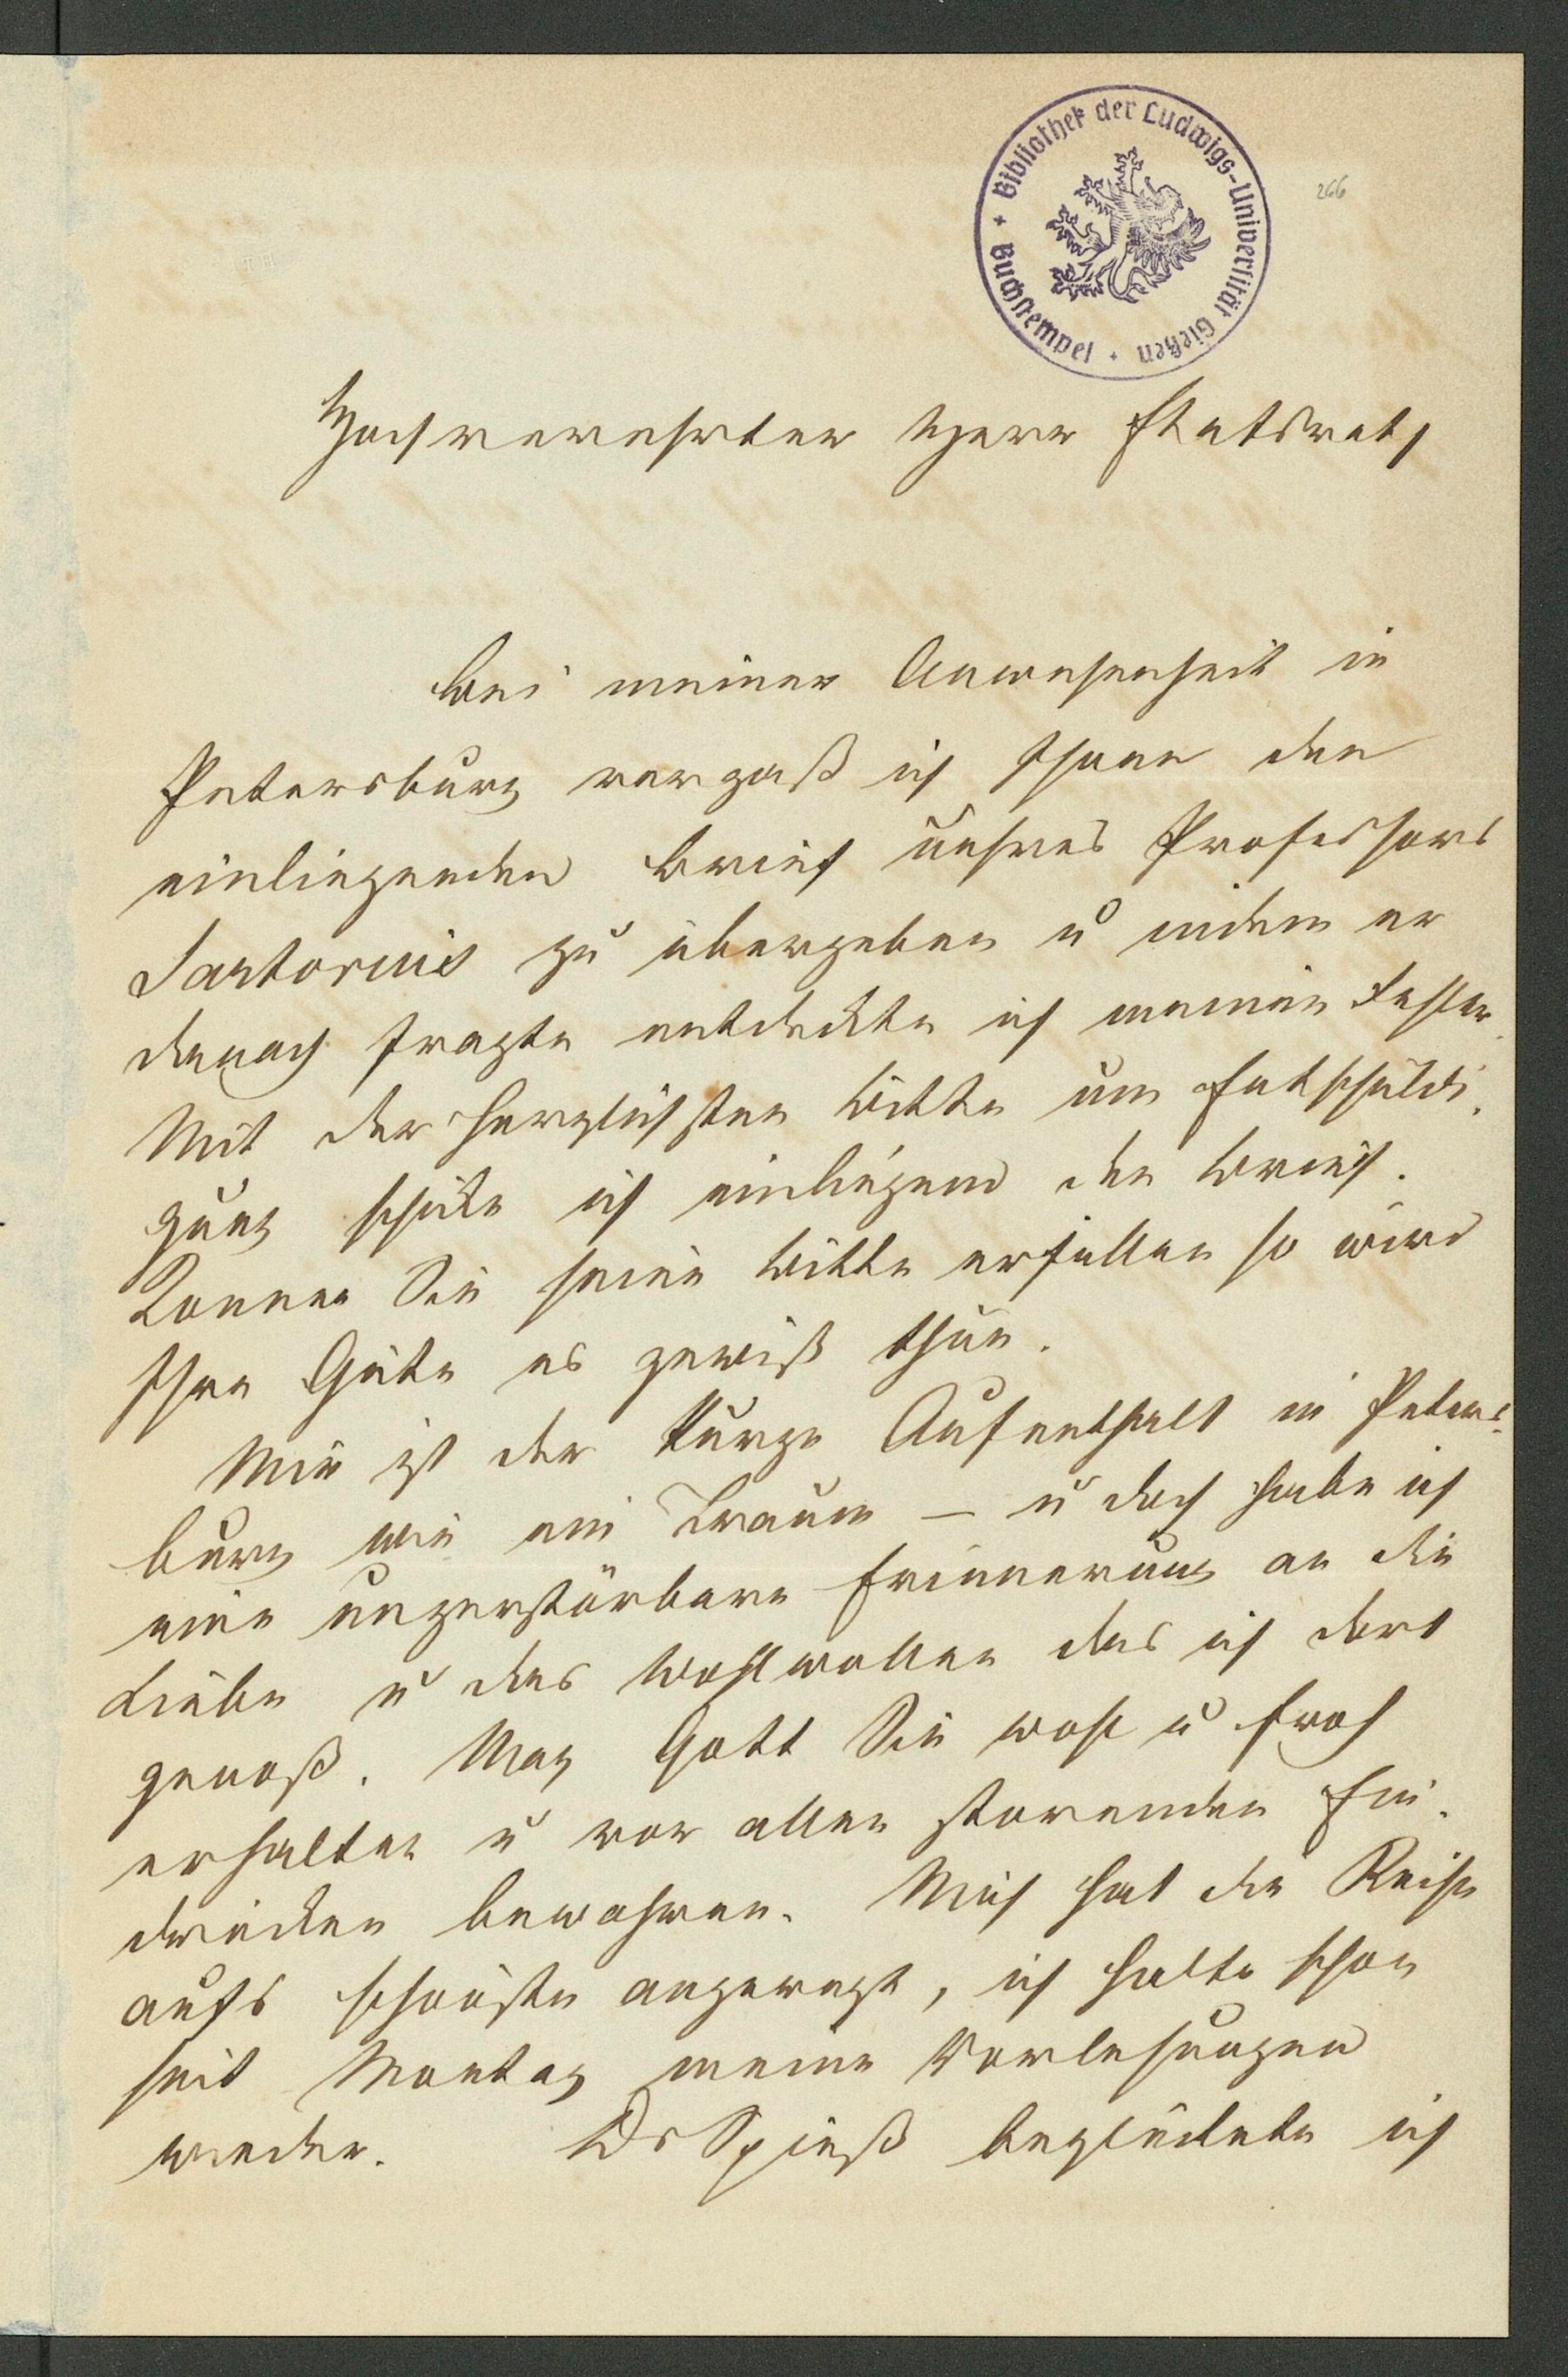 Bibliothek der Ludwigs-Universität Gießen
Buchstempel
266
Hochverehrter Herr Etatsrat,
Bei meiner Anwesenheit in
Petersburg vergaß ich Ihnen den
einliegenden Brief unsres Professors
Sartorius zu übergeben u indem er
danach fragte entdeckte ich meinen Fehler.
Mit der herzlichsten Bitte um Entschuldi-
gung schicke ich einliegend den Brief.
Konnen Sie seine Bitte erfullen so wird
Ihre Güte es gewiß thun.
Mir ist der kurze Aufenthalt in Peters-
burg wie ein Traum – u doch habe ich
eine unzerstörbare Erinnerung an die
Liebe u das Wohlwollen das ich dort
genoß. Mag Gott Sie wohl u froh
erhalten u vor allen storenden Ein-
drücken bewahren. Mich hat die Reise
aufs schönste angeregt, ich halte schon
seit Montag meine Vorlesungen
wieder. Dr Spieß beglückte ich